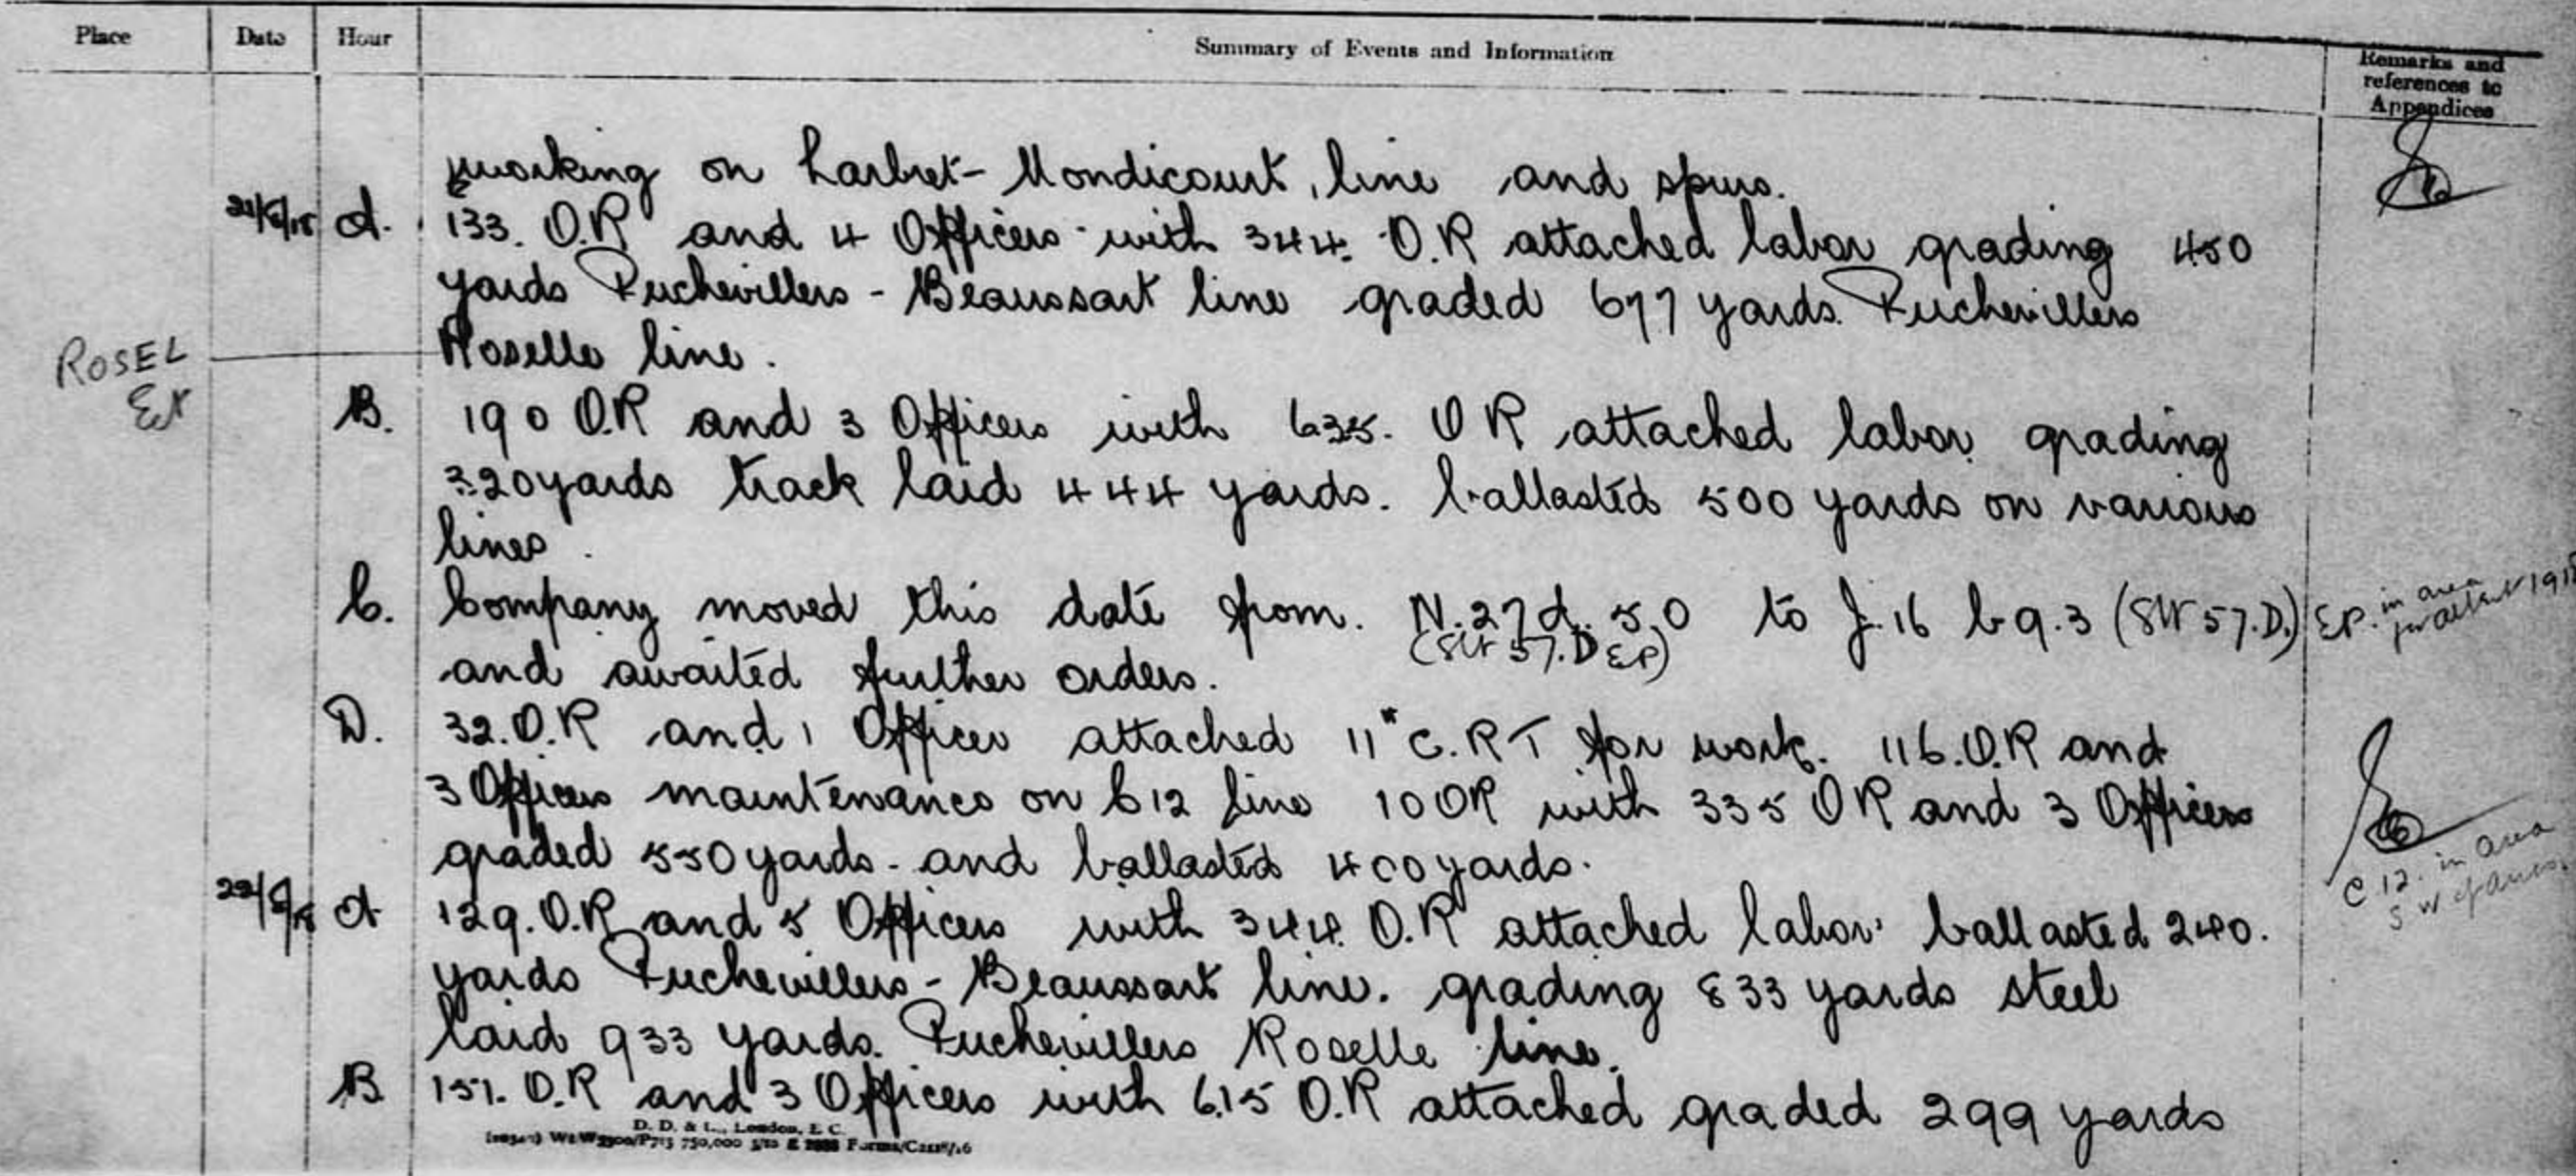 Place Date Hour Summary of Events and Information Remarks and references to Appendices
working on Larbret - Mondicourt, line and spurs.
A. 133. O.R and 4 Officers with 344. O.R attached labor grading 450
yards Puchevillers - Beaussart line graded 677 yards. Puchevillers
Roselle line.
ROSEL
B. 190 O.R and 3 Officers with 635. O R attached labor grading
320 yards track laid 444 yards. ballasted 500 yards on various
lines.
C. Company moved this date from. N.27d.5.0 to J.16 b 9.3 (SW 57.D.) EP. in area
(SW 57.D EP)
and awaited further orders.
D. 32. O.R and 1 Officer attached 11" C.R T for work. 116. O.R and
3 Officers maintenance on C12 line 10 OR with 335 OR and 3 Officers
graded 550 yards - and ballasted 400 yards.
C 12. in area
S W of
A 129. O.R and 5 Officers with 344. O.R attached labor ballasted 240.
yards Puchevillers - Beaussart line. grading 833 yards steel
laid 933 yards. Puchevillers Roselle line.
B 151. O.R and 3 Officers with 615 O.R attached graded 299 yards
D. D. & L., London, E C.
Forms/C2118/16